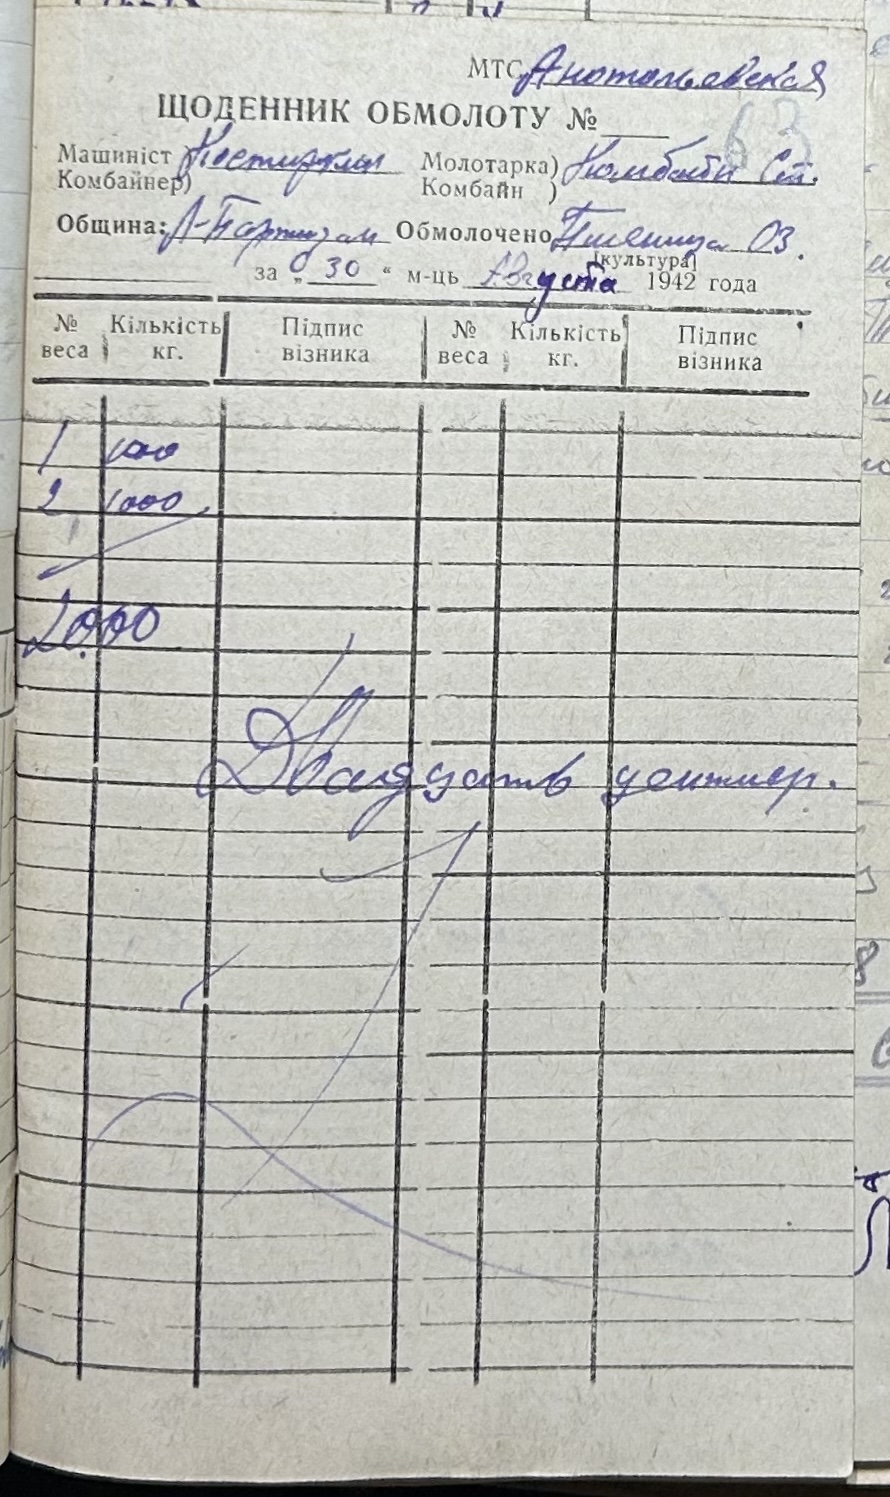 МТС Анатольевская
63
ЩОДЕННИК ОБМОЛОТУ №
Машиніст Молотарка) Комбайн Ст.
Комбайнер) Комбайн )
Община: Л-Партизан Обмолочено Пшеница Оз.
[культура]
за „ 30 “ м-ць Августа 1942 года
№ веса Кількість кг. Підпис візника № веса Кількість кг. Підпис візника
1 1000
2 1000
2000
Двадцать центнер.